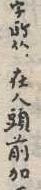 字所以在人頭前加一